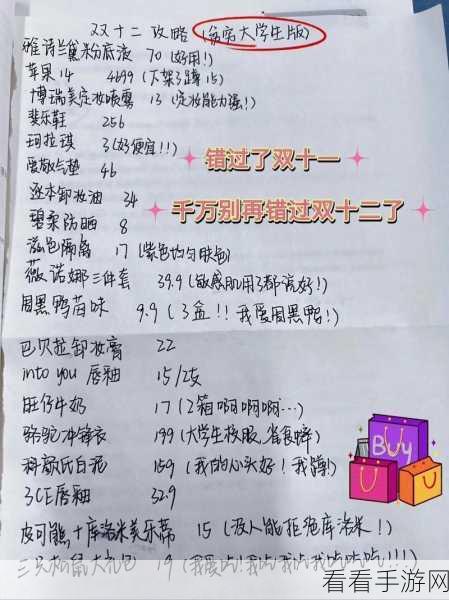 双十二攻略 (穷穷大学生版)
雅诗兰黛粉底液 70 (好用!)
苹果14 4699 (下架了蹲15)
博瑞美定妆喷雾 13 (定妆能力强!)
斐乐鞋 256
珂拉琪 3 (好便宜!!)
爱敬气垫 46
逐本卸妆油 34
碧柔防晒 8
滋色隔离 17 (紫色均匀肤色)
薇诺娜三件套 39.9 (敏感肌用了都说好!)
周黑鸭 9.9 (3盒!!我爱周黑鸭!)
芭贝拉卸妆膏 22
into you 唇釉 15/2支
旺仔牛奶 17 (2箱啊啊啊...)
骆驼冲锋衣 199 (大学生校服,
科颜氏白泥 159 (我的心头好!我蹲!)
3CE唇釉 32.9
皮可熊+库洛米美乐蒂 15 (没人能拒绝库洛米!)
三只松鼠大礼包 19
错过了双十一
千万别再错过双十二了
Buy
看看手游网